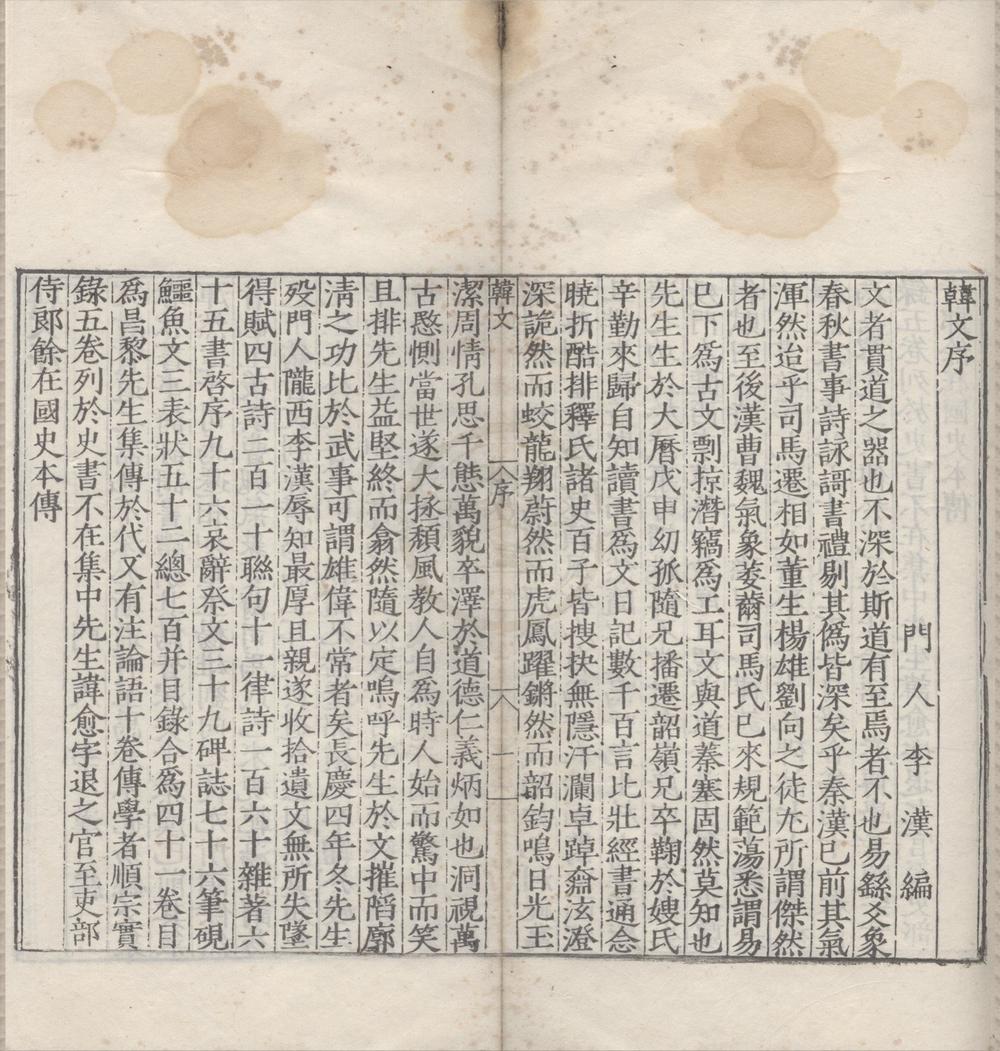 韓文序
門人李漢編
文者貫道之器也不深於斯道有至焉者不也易繇爻象
春秋書事詩詠謌書禮剔其僞皆深矣乎秦漢已前其氣
渾然迨乎司馬遷相如董生楊雄劉向之徒尢所謂傑然
者也至後漢曹魏氣象萎薾司馬氏已來規範蕩悉謂易
已下爲古文剽掠潛竊爲工耳文與道蓁塞固然莫知也
先生生於大曆戊申幼孤隨兄播遷韶嶺兄卒鞠於嫂氏
辛勤來歸自知讀書爲文日記數千百言比壯經書通念
曉折酷排釋氏諸史百子皆搜抉無隱汗瀾卓踔奫泫澄
深詭然而蛟龍翔蔚然而虎鳳躍鏘然而韶鈞鳴日光玉
韓文
序
一
潔周情孔思千態萬貌卒澤於道德仁義炳如也洞視萬
古愍惻當世遂大拯頹風教人自爲時人始而驚中而笑
且排先生益堅終而翕然隨以定嗚呼先生於文摧陷廓
清之功比於武事可謂雄偉不常者矣長慶四年冬先生
歿門人隴西李漢辱知最厚且親遂收拾遺文無所失墜
得賦四古詩二百一十聯句十一律詩一百六十雜著六
十五書啓序九十六哀辭祭文三十九碑誌七十六筆硯
鱷魚文三表狀五十二總七百并目錄合爲四十一卷目
爲昌黎先生集傳於代又有注論語十卷傳學者順宗實
錄五卷列於史書不在集中先生諱愈字退之官至吏部
侍郎餘在國史本傳